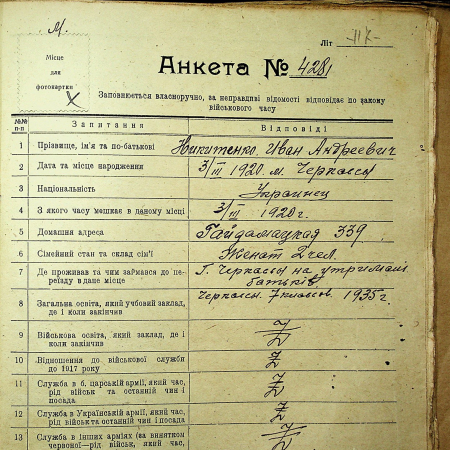 М.
Літ
Місце
для
фотокартки
Анкета № 4281
Заповнюється власноручно, за неправдиві відомості відповідає по закону
військового часу
№№ п-п Запитання Відповіді
1 Прізвище, ім'я та по-батькові Никитенко Иван Андреевич
2 Дата та місце народження 3/III 1920. м. Черкассы
3 Національність Украинец
4 З якого часу мешкає в даному місці 3/III - 1920г.
5 Домашня адреса Гайдамацкая 339
6 Сімейний стан та склад сім'ї Женат 2 чел.
7 Де проживав та чим займався до пе- Г. Черкассы на утримані
реїзду в дане місце батьків
8 Загальна освіта, який учбовий заклад, Черкассы. 7 классов. 1935 г.
де і коли закінчив
9 Військова освіта, який заклад, де і
коли закінчив
10 Відношення до військової служби
до 1917 року
11 Служба в б. царській армії, який час,
рід військ та останній чин і
посада
12 Служба в Українській армії, який час,
рід військ та останній чин і посада
13 Служба в інших арміях (за винятком
червоної—рід військ, який час,